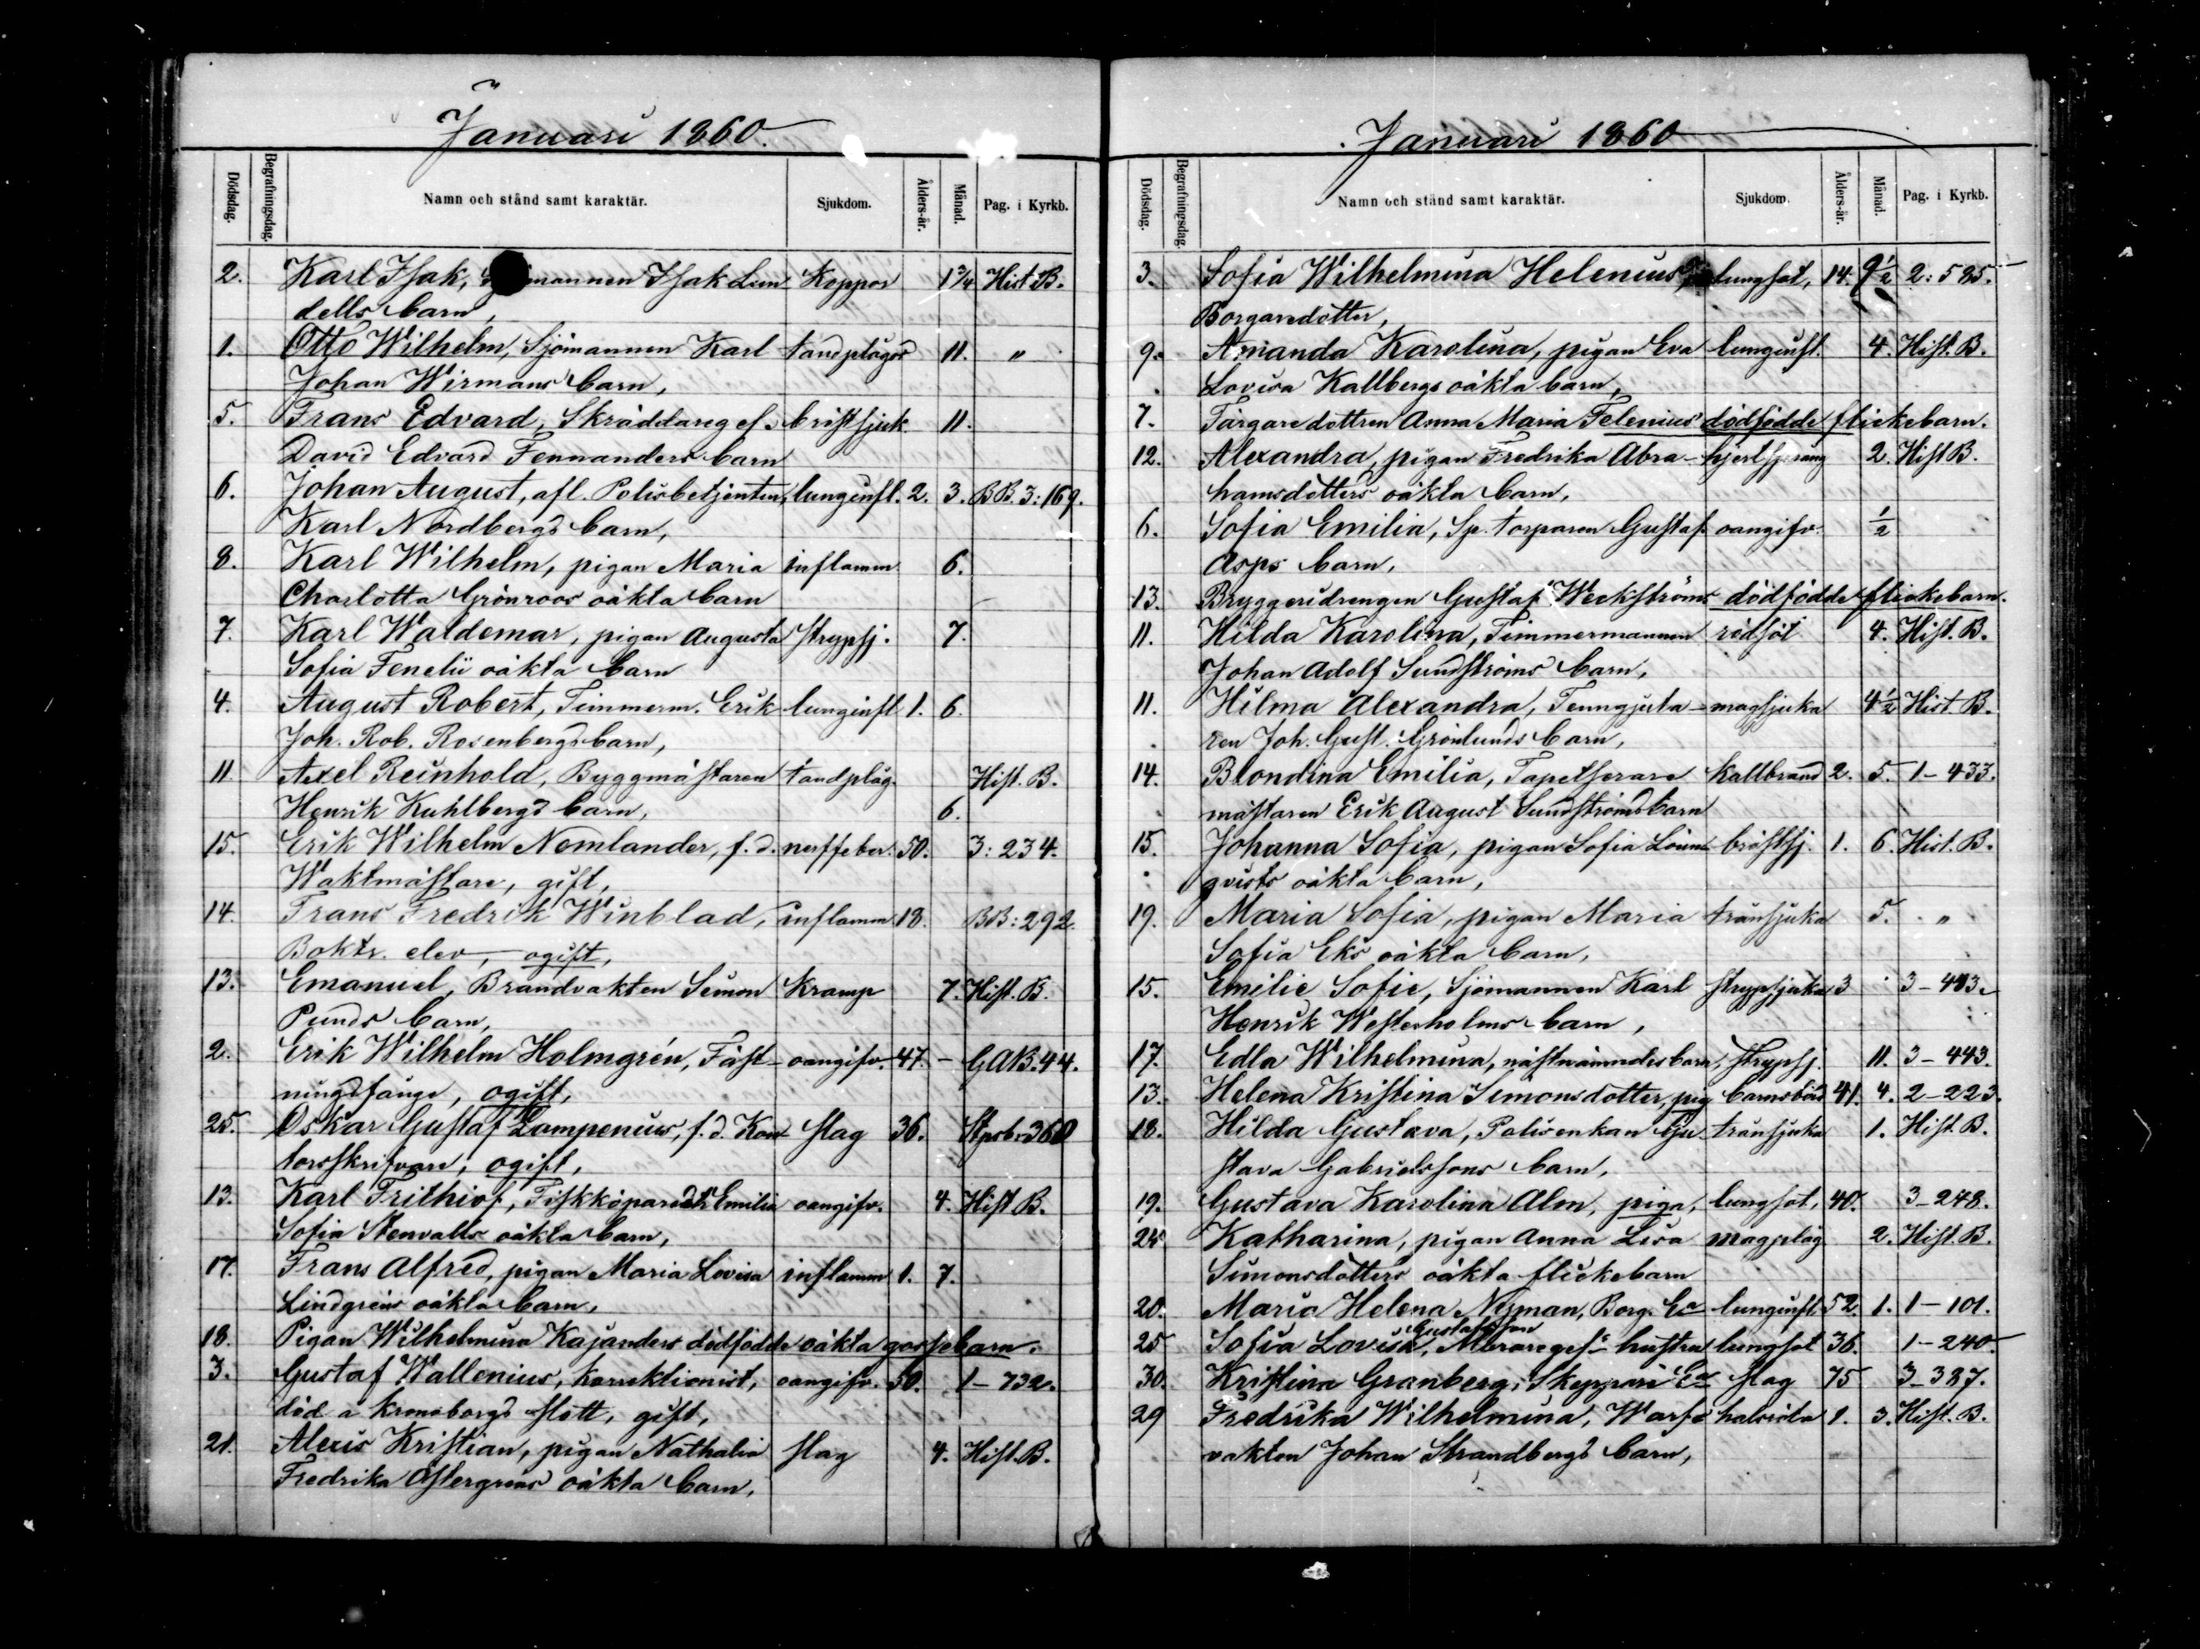 Januari 1860.
Dödsdag. Begrafningsdag. Namn och stånd samt karaktär. Sjukdom. Ålders-år. Månad. Pag. i Kyrkb.
2. Karl Isak, mannen Isak Lun- Koppor 1 3/4 Hist. B.
dells barn,
1. Otto Wilhelm, Sjömannen Karl tandplågor 11. "
Johan Wirmans barn,
5. Frans Edvard, Skräddareges. bristsjuk. 11.
David Edvard Fennanders barn
6. Johan August, afl. Polisbetjenten, lunginfl. 2. 3. BB. 3: 169.
Karl Nordbergs barn,
8. Karl Wilhelm, pigan Maria inflamm. 6.
Charlotta Grönroos oäkta barn
7. Karl Waldemar, pigan Augusta strypsj. 7.
Sofia Fenelii oäkta barn
4. August Robert, Timmerm. Erik lunginfl. 1. 6.
Joh. Rob. Rosenbergs barn,
11 Axel Reinhold, Byggmästaren tandplåg. Hist. B.
Henrik Kuhlbergs barn, 6.
15. Erik Wilhelm Nomlander, f. d. nerffeber. 50. 3: 234.
Waktmästare, gift,
14. Frans Fredrik Winblad, inflamm. 18. BB: 292.
Boktr. elev, ogift,
13. Emanuel, Brandvakten Simon Kramp 7. Hist. B.
Punds barn,
2. Erik Wilhelm Holmgrén, Fäst- oangifv. 47. - GAB. 44.
ningsfånge, ogift,
25. Oskar Gustaf Lampenius, f. d. Kon- slag 36. Stpsb: 360
torsskrifvare, ogift,
13. Karl Frithiof, Fiskköparedtr Emilia oangifv. 4. Hist. B.
Sofia Stenvalls oäkta barn,
17. Frans Alfred, pigan Maria Lovisa inflamm 1. 7.
Lindgréns oäkta barn,
18. Pigan Wilhelmina Kajanders dödfödde oäkta gossebarn.
3. Gustaf Wallenius, korrektionist, oangifv. 50. 1-732.
död a Kronoborgs slott, gift,
21. Alexis Kristian, pigan Nathalia slag 4. Hist. B.
Fredrika Östergréns oäkta barn,
Januari 1860
Dödsdag. Begrafningsdag. Namn och stånd samt karaktär. Sjukdom. Ålders-år. Månad. Pag. i Kyrkb.
3. Sofia Wilhelmina Helenius, lungsot, 14. 9 1/2 2: 585.
Borgaredotter,
9. Amanda Karolina, pigan Eva lunginfl. 4. Hist. B.
Lovisa Kallbergs oäkta barn,
7. Färgaredottren Anna Maria Felenius dödfödde flickebarn.
12. Alexandra, pigan Fredrika Abra- hjertsprång 2. Hist B.
hamsdotters oäkta barn,
6. Sofia Emilia, Sp. torparen Gustaf oangifv. 1/2
Asps barn,
13. Bryggeridrengen Gustaf Weckströms dödfödde flickebarn.
11. Hilda Karolina, Timmermannen rödsot 4. Hist. B.
Johan Adolf Sundströms barn,
11. Hilma Alexandra, Tenngjuta- magsjuka 4 1/2 Hist. B.
ren Joh. Gust. Grönlunds barn,
14. Blondina Emilia, Tapetserare kallbrand 2. 5. 1-433.
mästaren Erik August Sundströms barn
15. Johanna Sofia, pigan Sofia Lönn- bröstsj. 1. 6. Hist. B.
qvists oäkta barn,
19. Maria Sofia, pigan Maria trånsjuka 5. "
Sofia Eks oäkta barn,
15. Emilie Sofie, Sjömannen Karl strypsjuka 3 3-443.
Henrik Westerholms barn,
17. Edla Wilhelmina, nästnämndes barn, strypsj. 11. 3-443.
13. Helena Kristina Simonsdotter, pig barnsbörd 41. 4. 2-223.
18. Hilda Gustava, Polisenkan Gu- trånsjuka 1. Hist. B.
stava Gabrielssons barn,
19. Gustava Karolina Alm, piga, lungsot, 40. 3-248.
24 Katharina, pigan Anna Lisa magplåg. 2. Hist. B.
Simonsdotters oäkta flickebarn
20. Maria Helena Nyman, Borg. Ea lunginfl. 52. 1. 1-101.
Gustafsson
25 Sofia Lovisa, Murareges. hustru lungsot 36. 1-240.
30. Kristina Granberg, Skeppare Ea slag 75 3-387.
29 Fredrika Wilhelmina, Warfs- halsröta 1. 3. Hist. B.
vakten Johan Strandbergs barn,